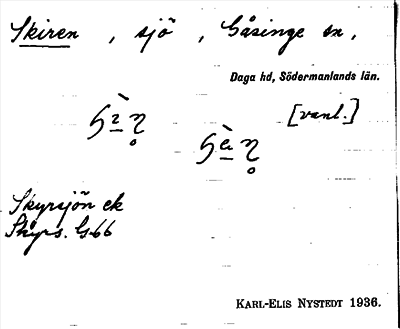 Skiren, sjö, Gåsinge sn,
Daga hd, Södermanlands län.
[vanl.]
Skyrsjön ek
Skyrs. G 66
KARL-ELIS NYSTEDT 1936.